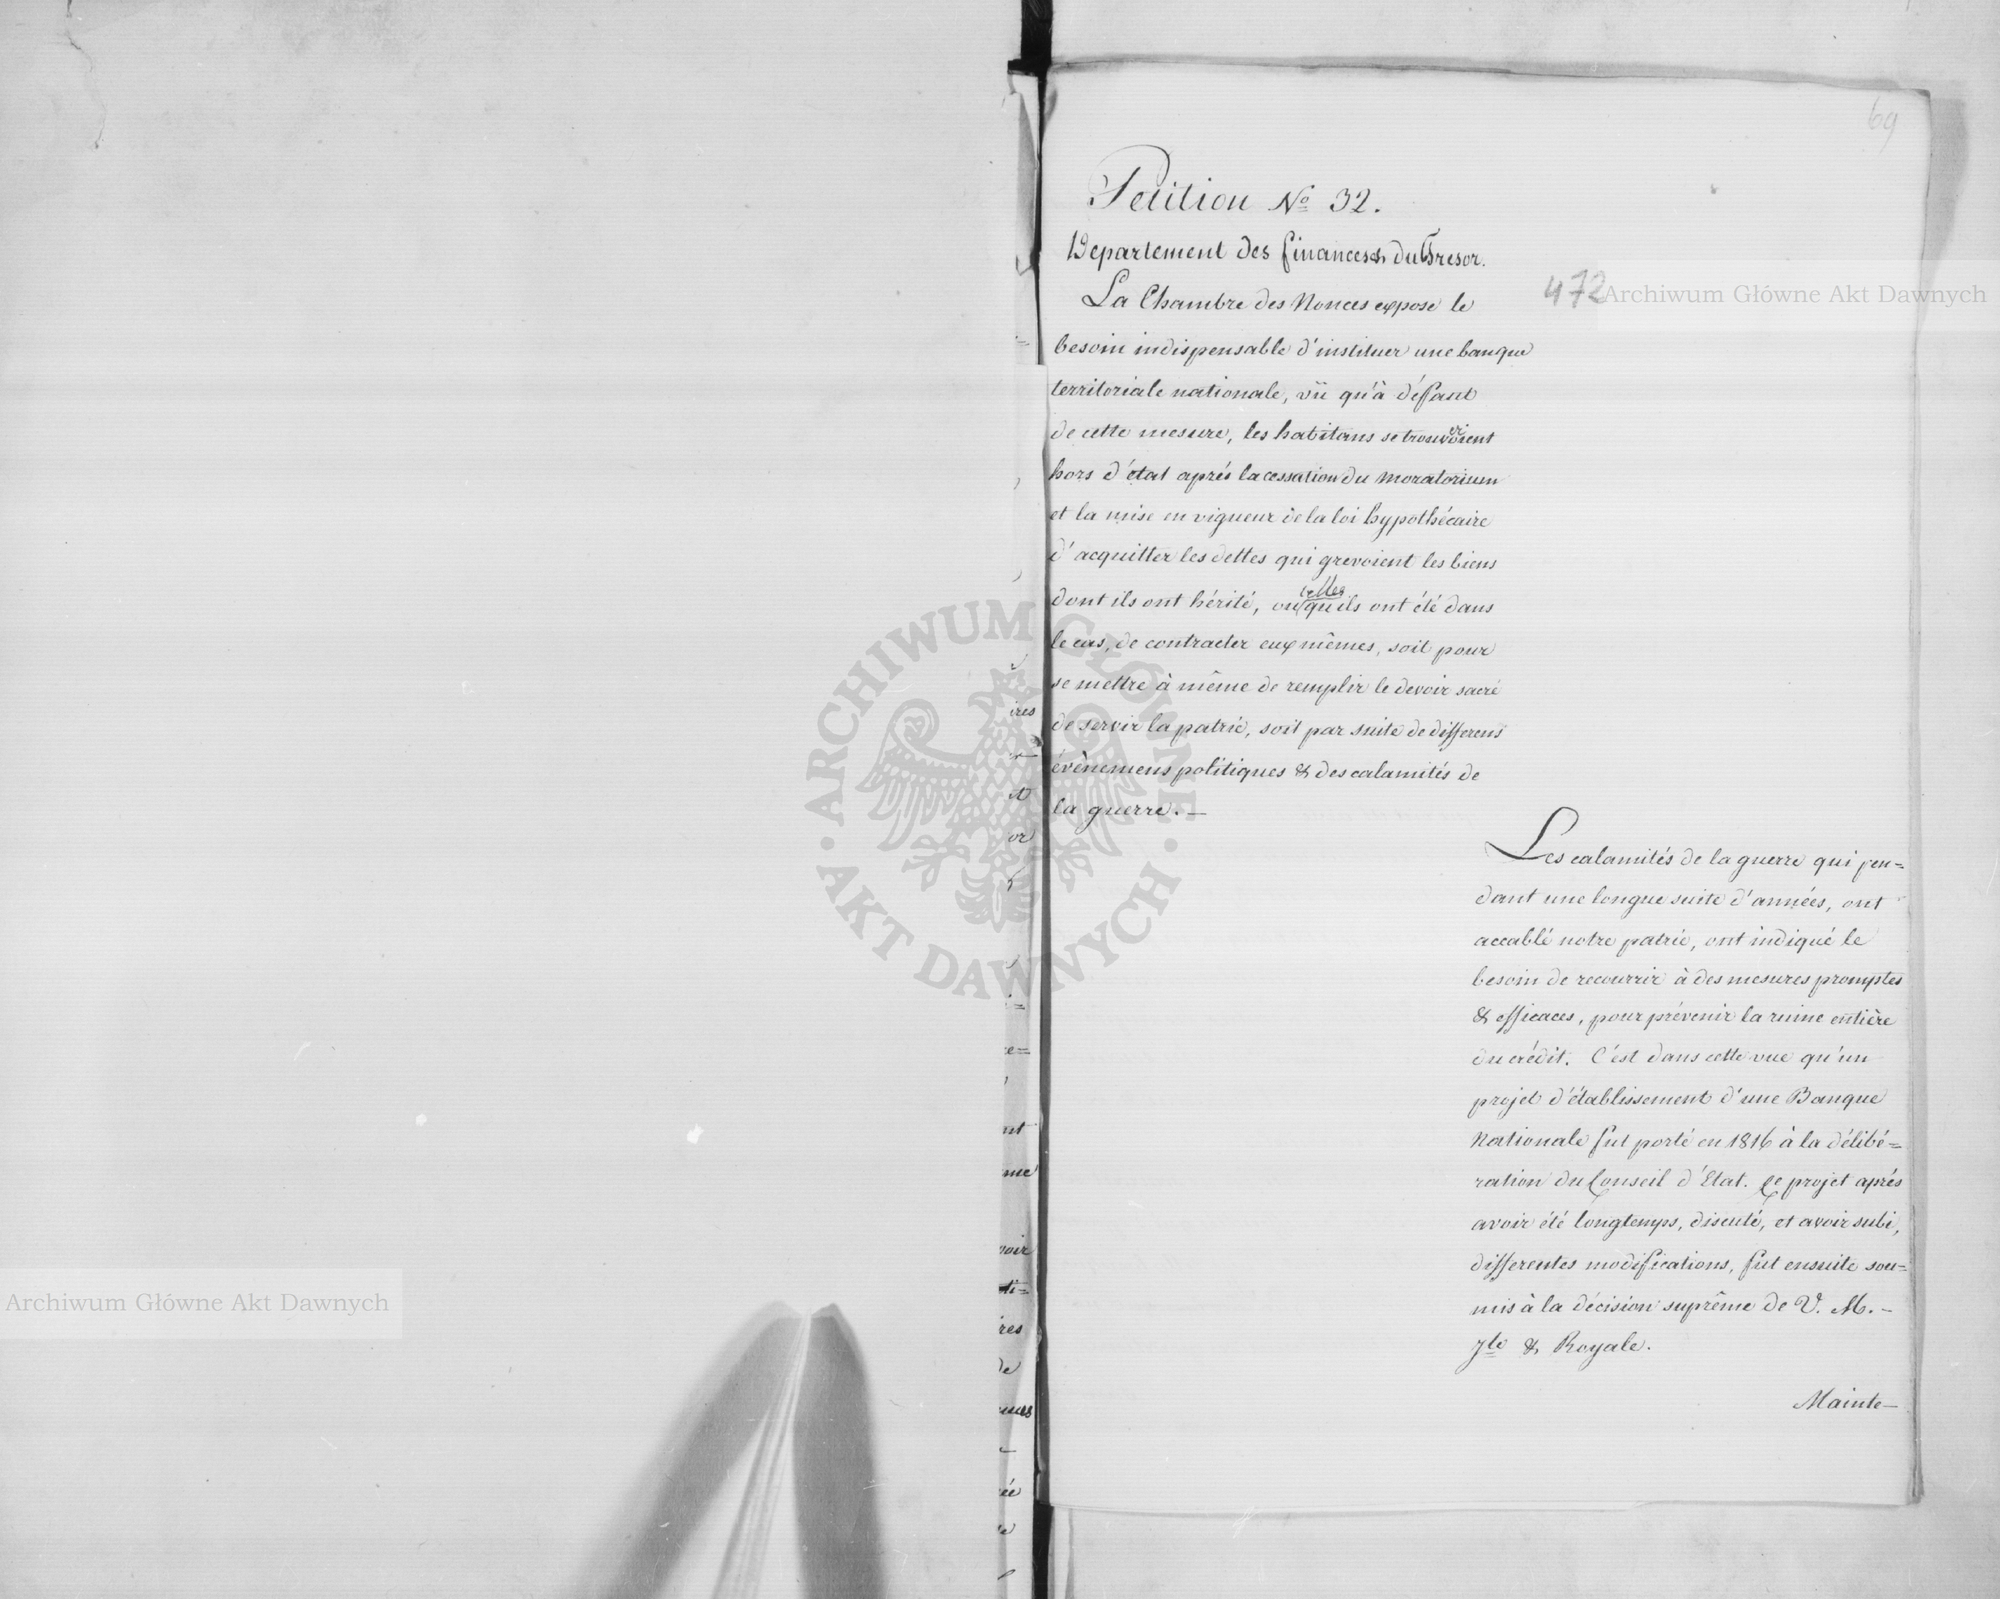 69
Petition No 32.
Departement des finances & du Tresor.
472
La Chambre des Nonces expose le
besoin indispensable d'instituer une banque
territoriale nationale, vü qu'à déffaut
de cette mesure, les habitans se trouveroient
hors d'état aprés la cessation du Moratorium
et la mise en vigueur de la loi hypothécaire
d'acquitter les dettes qui grevoient les biens
dont ils ont hérité, ou celles qu'ils ont été dans
le cas, de contracter eux mêmes, soit pour
se mettre à même de remplir le devoir sacré
de servir la patrie, soit par suite de differens
évènemens politiques & des calamités de
la guerre. —
Les calamités de la guerre qui pen=
dant une longue suite d'années, ont
accablé notre patrie, ont indiqué le
besoin de recourrir à des mesures promptes
& efficaces, pour prévenir la ruine entière
du crédit. C'est dans cette vue qu'un
projet d'établissement d'une Banque
Nationale fut porté en 1816 à la délibé=
ration du Conseil d'Etat. Ce projet aprés
avoir été longtemps, discuté, et avoir subi,
differentes modifications, fut ensuite sou=
mis à la décision suprême de V. M. -
Jle & Royale.
Mainte—
Archiwum Główne Akt Dawnych
ARCHIWUM GŁÓWNE · AKT DAWNYCH ·
Archiwum Główne Akt Dawnych